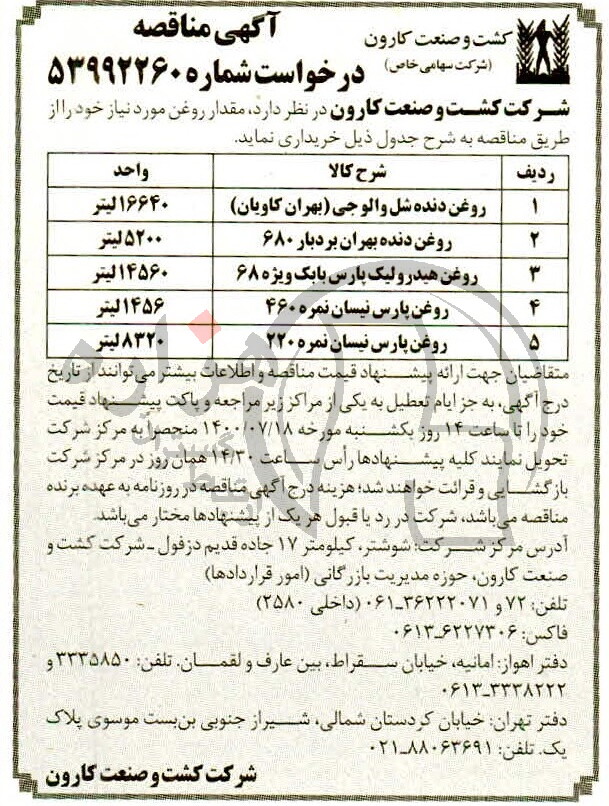 کشت و صنعت کارون
(شرکت سهامی خاص)
آگهی مناقصه
درخواست شماره ۵۳۹۹۲۲۶۰
شرکت کشت و صنعت کارون در نظر دارد، مقدار روغن مورد نیاز خود را از
طریق مناقصه به شرح جدول ذیل خریداری نماید.
ردیف شرح کالا واحد
۱ روغن دنده شل والوجی (بهران کاویان) ۱۶۶۴۰ لیتر
۲ روغن دنده بهران بردبار ۶۸۰ ۵۲۰۰ لیتر
۳ روغن هیدرولیک پارس بابک ویژه ۶۸ ۱۴۵۶۰ لیتر
۴ روغن پارس نیسان نمره ۴۶۰ ۱۴۵۶ لیتر
۵ روغن پارس نیسان نمره ۲۲۰ ۸۳۲۰ لیتر
متقاضیان جهت ارائه پیشنهاد قیمت مناقصه و اطلاعات بیشتر می‌توانند از تاریخ
درج آگهی، به جز ایام تعطیل به یکی از مراکز زیر مراجعه و پاکت پیشنهاد قیمت
خود را تا ساعت ۱۴ روز یکشنبه مورخه ۱۴۰۰/۰۷/۱۸ منحصراً به مرکز شرکت
تحویل نمایند کلیه پیشنهادها رأس ساعت ۱۴/۳۰ همان روز در مرکز شرکت
بازگشایی و قرائت خواهند شد؛ هزینه درج آگهی مناقصه در روزنامه به عهده برنده
مناقصه می‌باشد، شرکت در رد یا قبول هر یک از پیشنهادها مختار می‌باشد.
آدرس مرکز شرکت: شوشتر، کیلومتر ۱۷ جاده قدیم دزفول ـ شرکت کشت و
صنعت کارون، حوزه مدیریت بازرگانی (امور قراردادها)
تلفن: ۷۲ و ۳۶۲۲۲۰۷۱ـ۰۶۱ (داخلی ۲۵۸۰)
فاکس: ۶۲۲۷۳۰۶ـ۰۶۱۳
دفتر اهواز: امانیه، خیابان سقراط، بین عارف و لقمان. تلفن: ۳۳۳۵۸۵۰ و
۳۳۳۸۲۲۲ـ۰۶۱۳
دفتر تهران: خیابان کردستان شمالی، شیراز جنوبی بن‌بست موسوی پلاک
یک. تلفن: ۸۸۰۶۳۶۹۱ـ۰۲۱
شرکت کشت و صنعت کارون